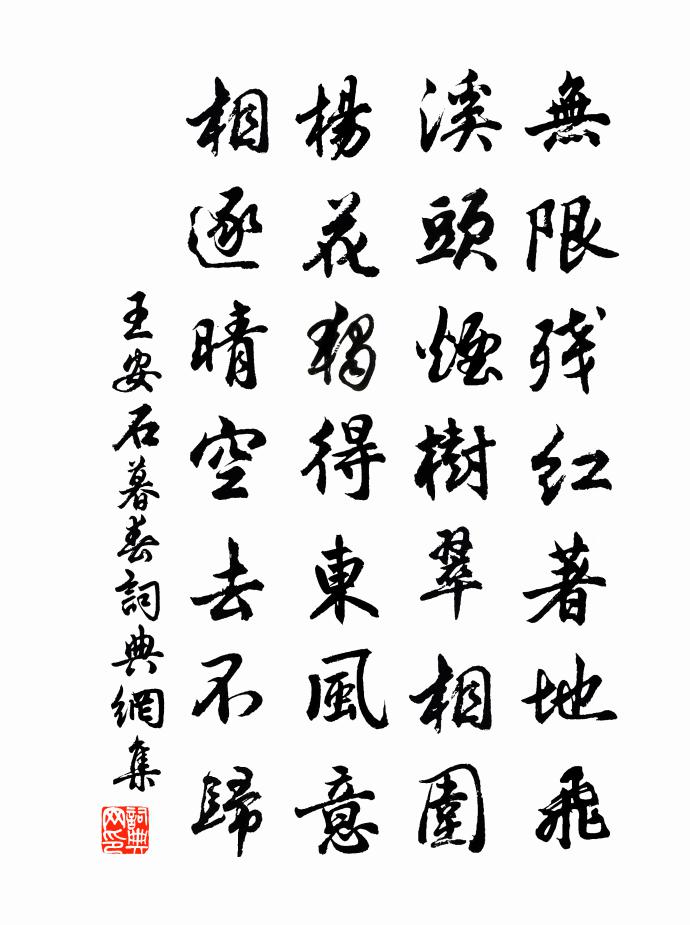 無限残紅著地飛
溪頭煙樹翠相圍
楊花獨得東風意
相逐晴空去不歸
王安石暮春詞典網集
詞典
网印